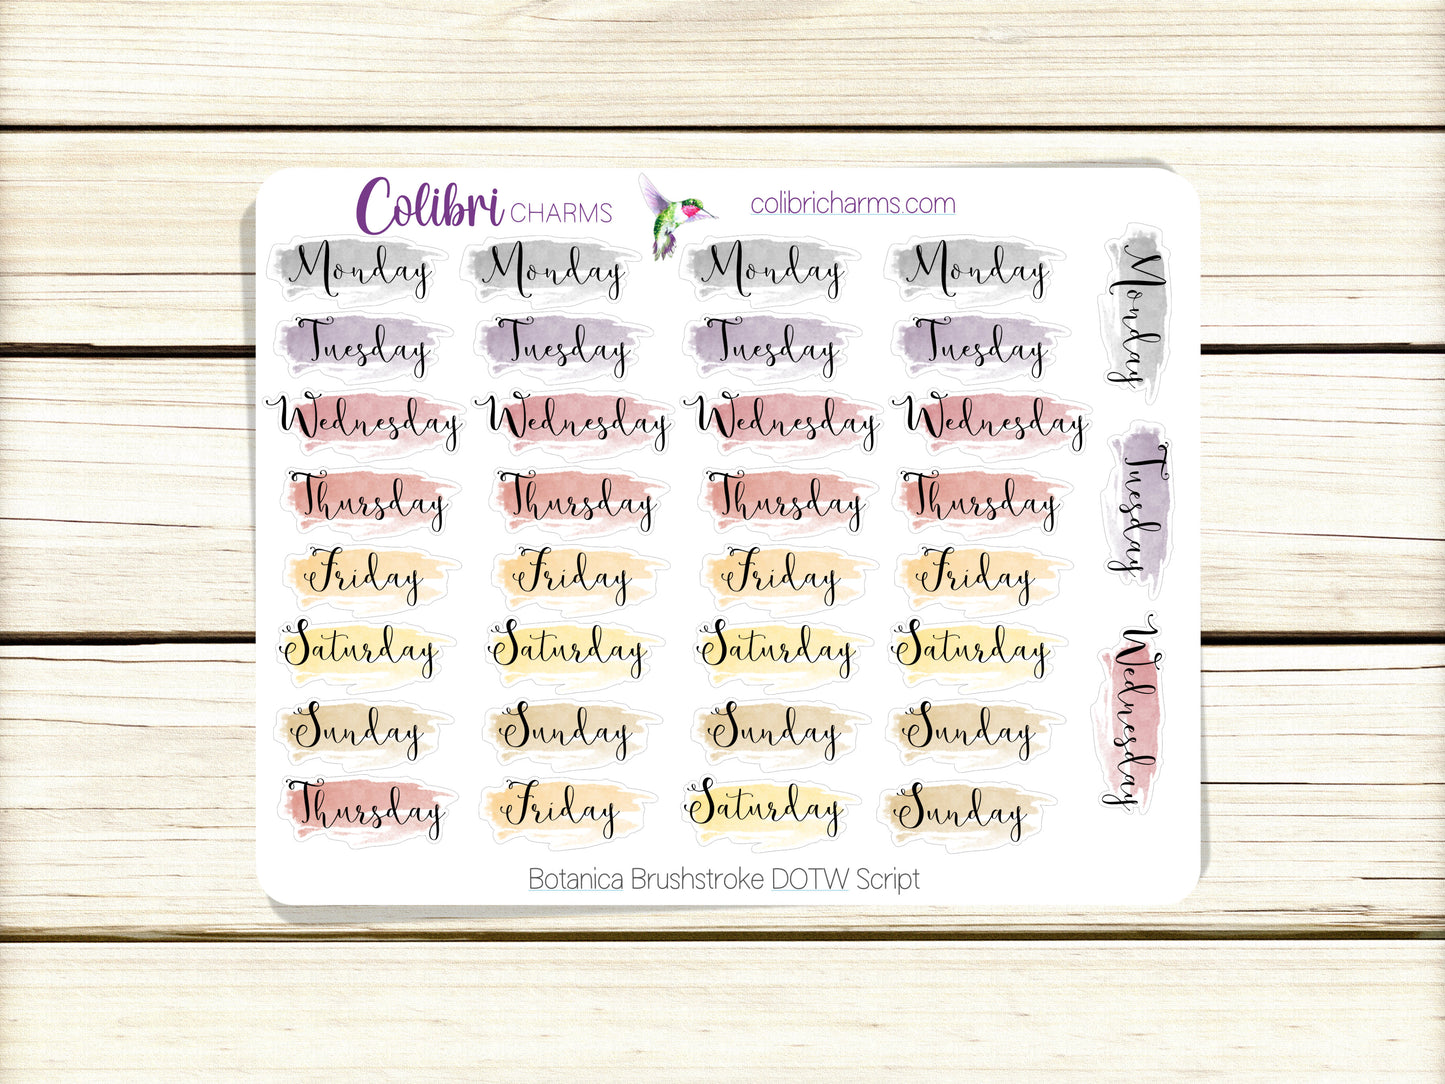 Colibri CHARMS
colibricharms.com
Monday Monday Monday Monday
Tuesday Tuesday Tuesday Tuesday
Wednesday Wednesday Wednesday Wednesday
Thursday Thursday Thursday Thursday
Friday Friday Friday Friday
Saturday Saturday Saturday Saturday
Sunday Sunday Sunday Sunday
Thursday Friday Saturday Sunday
Monday
Tuesday
Wednesday
Botanica Brushstroke DOTW Script